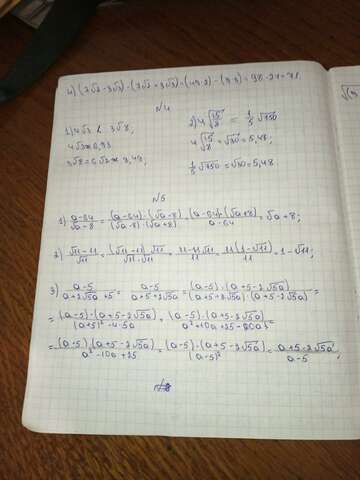 4) (7√2 - 3√3) - (7√2 + 3√3) = (49·2) - (9·3) = 98 - 27 = 71.
№4
1) 4√3 < 3√8; 2) 4√(15/8) = 1/5 √750
4√3 ≈ 6,93 4√(15/8) = √30 = 5,48;
3√8 = 6√2 ≈ 8,48; 1/5 √750 = √30 = 5,48.
№5
1) (a-64)/(√a-8) = ((a-64)·(√a+8))/((√a-8)·(√a+8)) = ((a-64)·(√a+8))/(a-64) = √a+8;
2) (√11-11)/√11 = ((√11-11)·√11)/(√11·√11) = (11-11√11)/11 = (11(1-√11))/11 = 1-√11;
3) (a-5)/(a+2√5a+5) = (a-5)/(a+5+2√5a) = ((a-5)·(a+5-2√5a))/((a+5+2√5a)·(a+5-2√5a)) =
= ((a-5)·(a+5-2√5a))/((a+5)²-4·5a) = ((a-5)·(a+5-2√5a))/(a²+10a+25-20a) =
= ((a-5)·(a+5-2√5a))/(a²-10a+25) = ((a-5)·(a+5-2√5a))/(a-5)² = (a+5-2√5a)/(a-5);